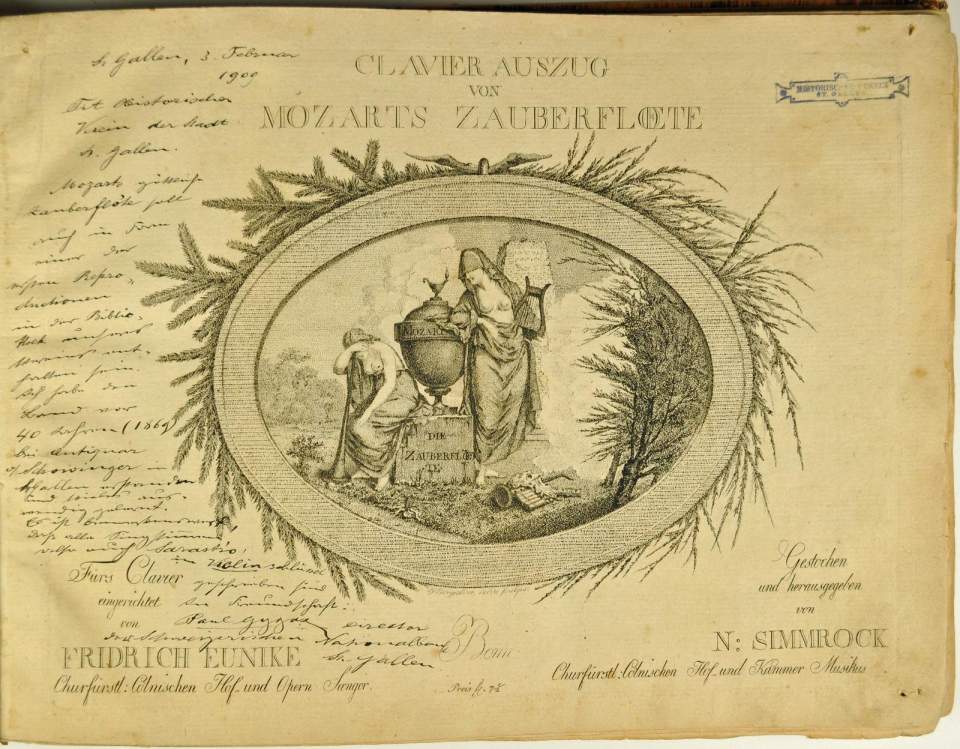 CLAVIER AUSZUG
VON
MOZARTS ZAUBERFLŒTE
HISTORISCHER VEREIN
ST. GALLEN
St. Gallen, 3. Februar
1909
Tit. Historischer
Verein der Stadt
St. Gallen.
Mozarts
Zauberflöte soll
auch in Form
einer der
ersten Repro-
ductionen
in der Biblio-
thek unseres
Vereins ent-
halten sein.
Ich habe den
Band vor
40 Jahren (1869)
bei Antiquar
Schowinger in
St. Gallen erstanden
und
Es ist bemerkenswert,
dass alle Singstimmen
selbst auch Sarastro,
im Violinschlüssel
geschrieben sind
In Freundschaft:
Paul Gygax, Director
der Schweizerischen Nationalbank
St. Gallen
MOZART
DIE
ZAUBERFLŒ
TE
Fürs Clavier
eingerichtet
von
FRIDRICH EUNIKE
Churfürstl: Cölnischen Hof und Opern Sænger.
Bonn
Preis fl. 7½
Gestochen
und herausgegeben
von
N: SIMMROCK
Churfürstl: Cölnischen Hof und Kammer Musikus